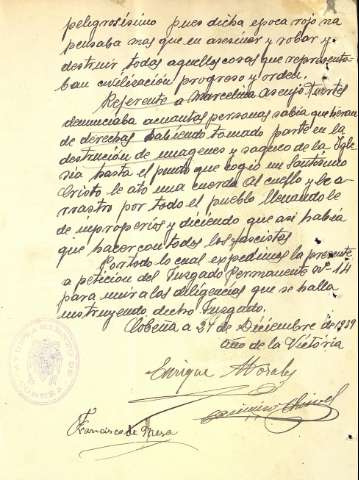 peligrosísimo pues dicha epoca roja no
pensaba mas que en asesinar y robar y
destruir todas aquellas cosas que representa-
ban civilización progreso y orden.
Referente a Marcelina Asenjo Fuertes
denunciaba acuantas personas sabia que eran
de derechas habiendo tomado parte en la
destrucción de imagenes y saqueo de la Igle
sia hasta el punto que cogio un Santisimo
Cristo le ató una cuerda al cuello y le a-
rrastro por todo el pueblo llenando le
de improperios y diciendo que asi habia
que hacer con todos los fascistas
Por todo lo cual expedimos la presente
a peticion del Juzgado Permanente nº 14
para unir a las diligencias que se halla
instruyendo dicho Juzgado.
Cobeña a 27 de Diciembre de 1939
Año de la Victoria
Enrique Morales
Francisco de Mesa